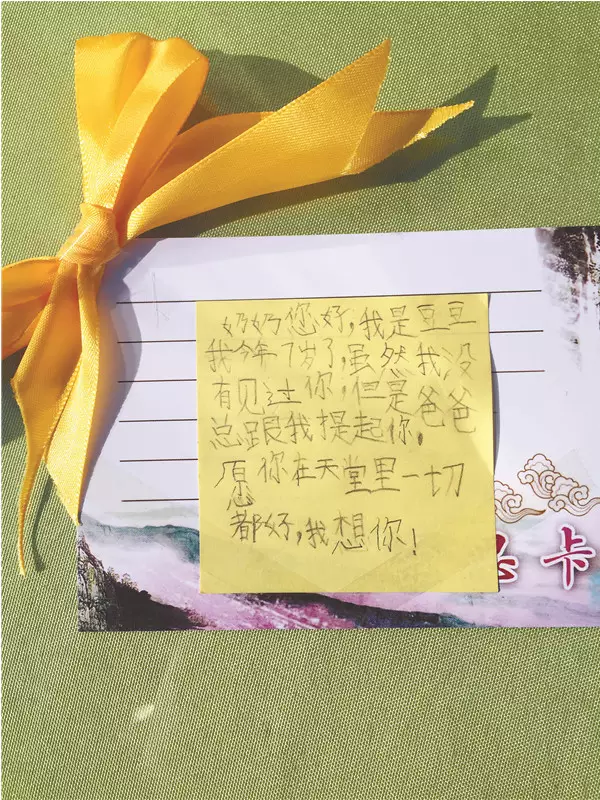 奶奶您好,我是豆豆
我今年7岁了,虽然我没
有见过你,但是爸爸
总跟我提起你,
愿你在天堂里一切
都好,我想你!
卡